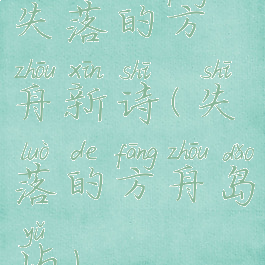 失落的方
zhōu xīn shī shī
舟新诗(失
luò de fāng zhōu dǎo
落的方舟岛
yǔ